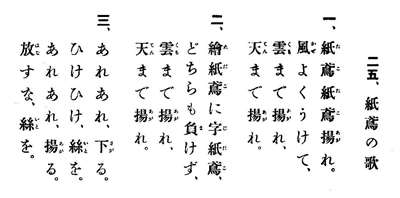 二五、紙鳶の歌
一、紙鳶紙鳶揚れ。
風よくうけて、
雲まで揚れ、
天まで揚れ。
二、繪紙鳶に字紙鳶、
どちらも負けず、
雲まで揚れ、
天まで揚れ。
三、あれあれ、下る。
ひけひけ、絲を。
あれあれ、揚る。
放すな、絲を。